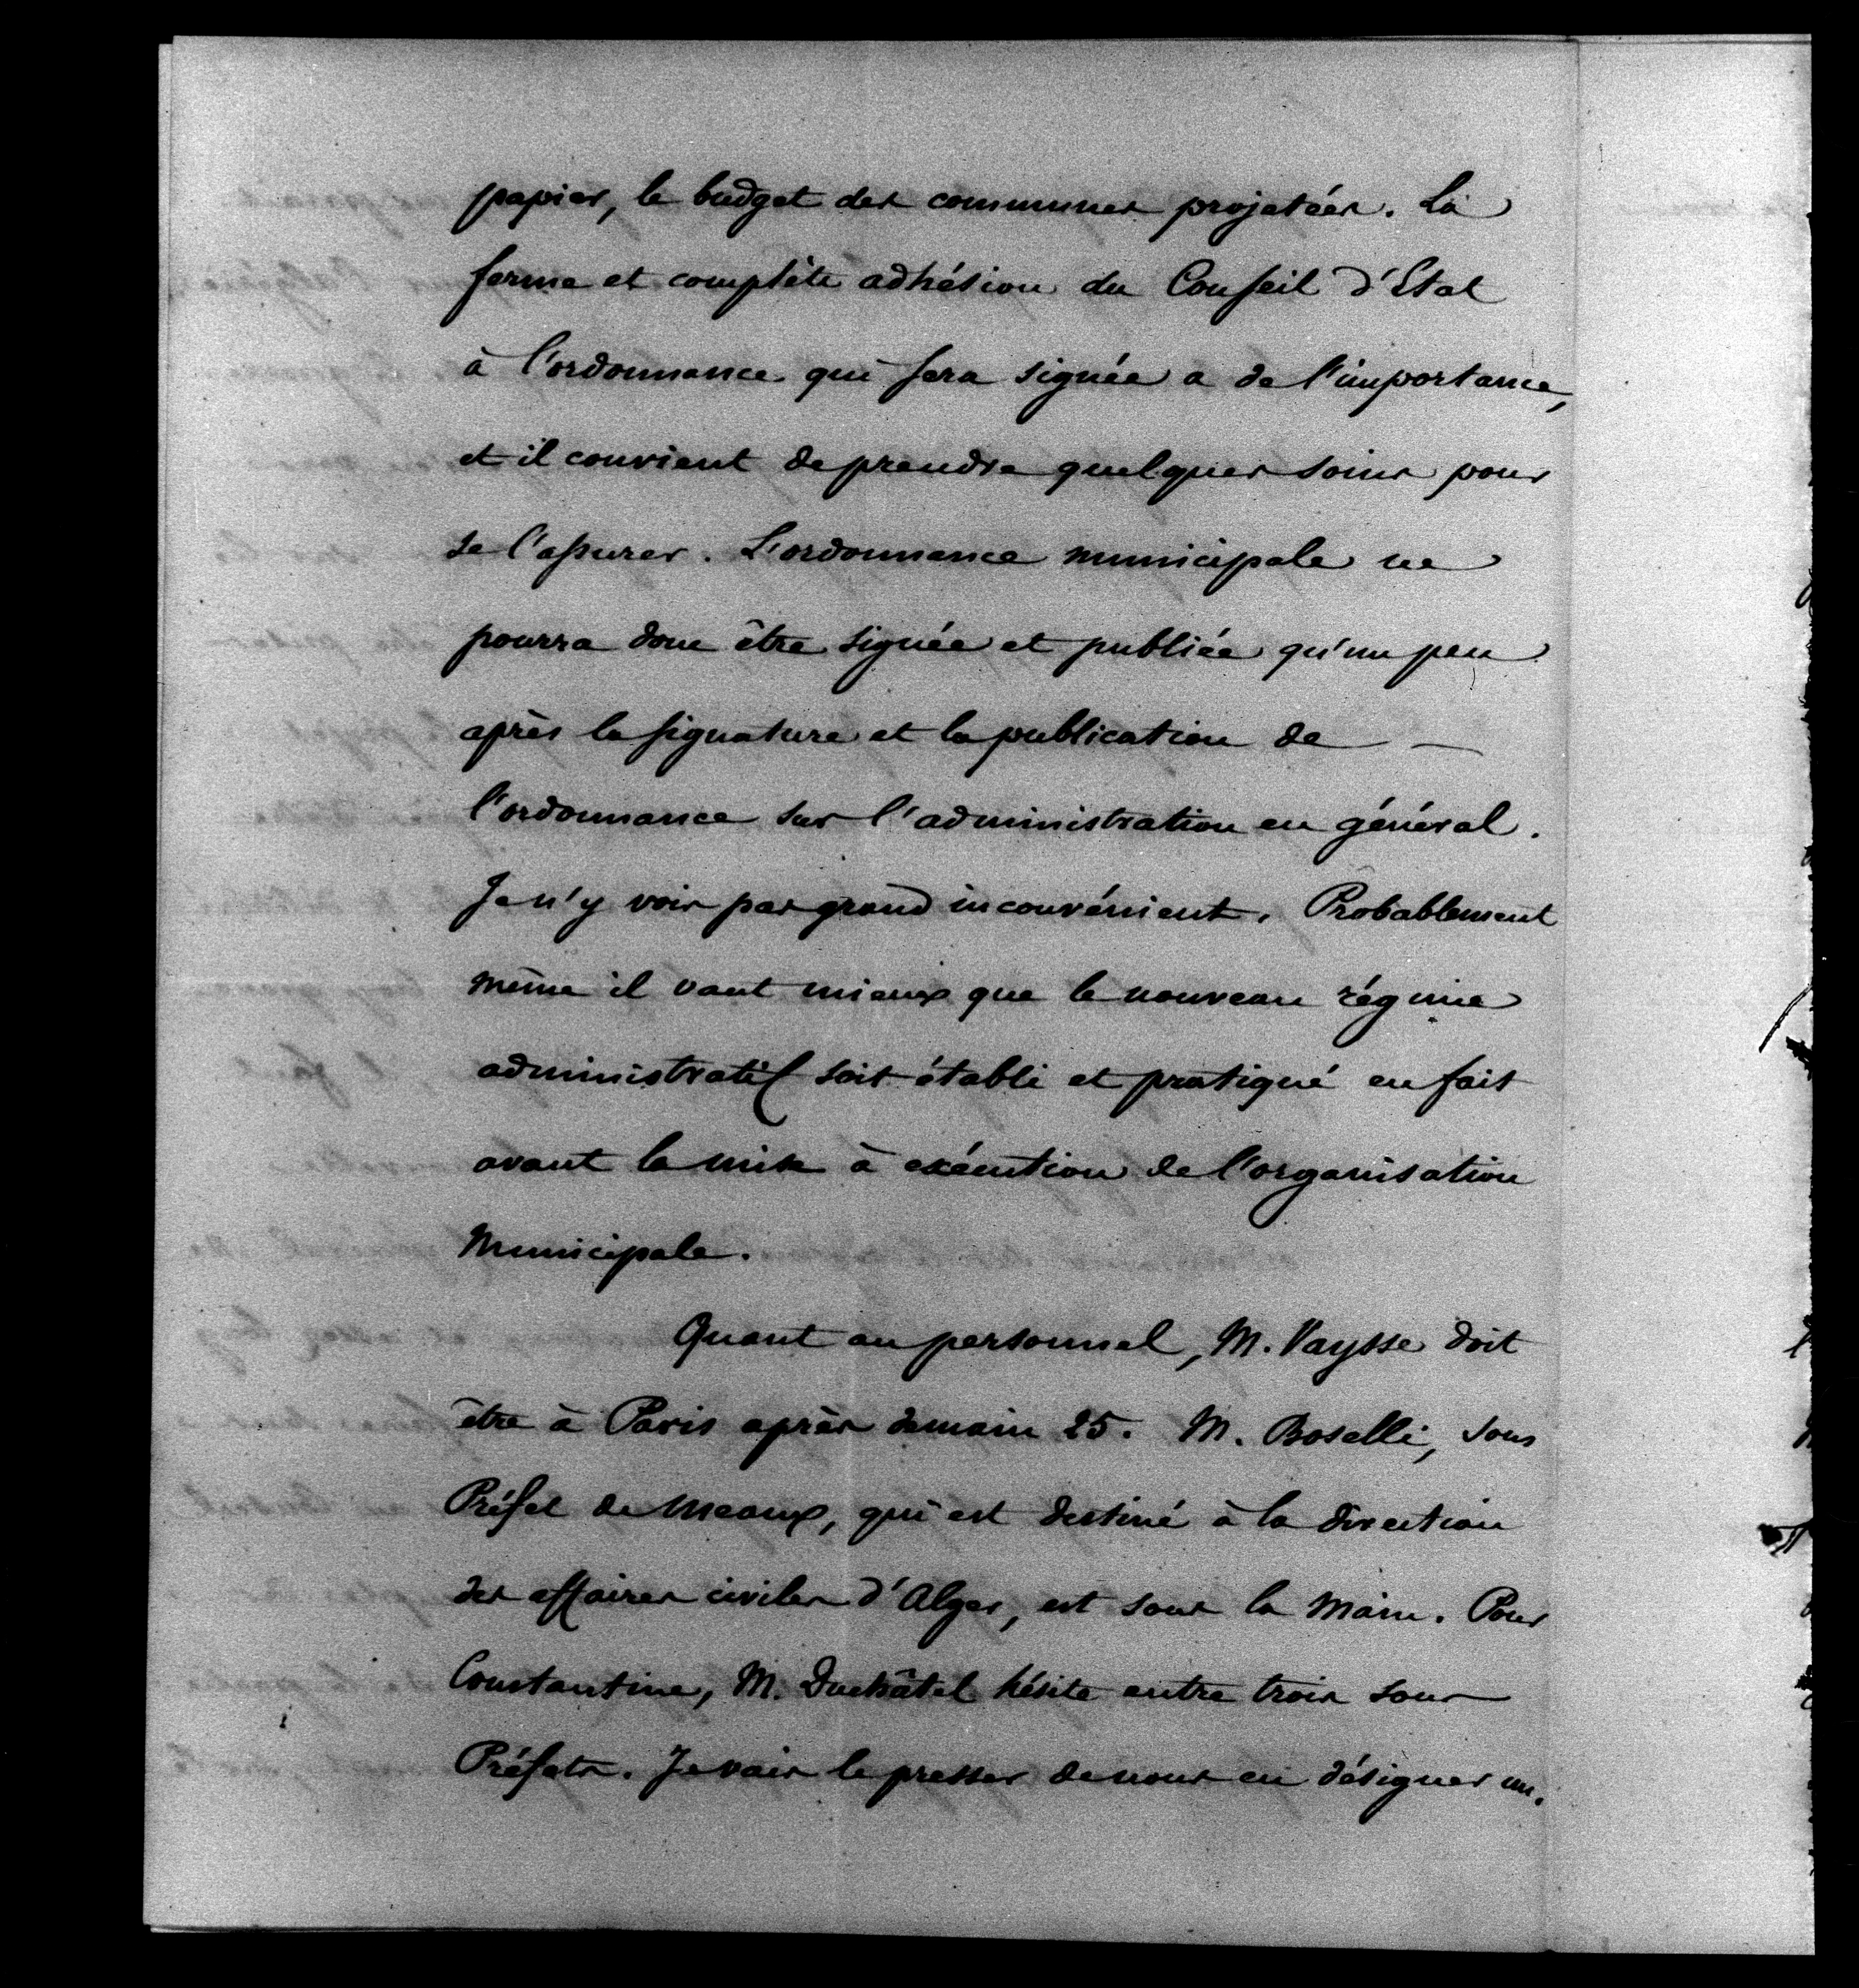 papier, le budget des communes projetées. La
ferme et complète adhésion du Conseil d'Etat
à l'ordonnance qui sera signée a de l'importance,
et il convient de prendre quelques soins pour
se l'assurer. L'ordonnance municipale ne
pourra donc être signée et publiée qu'un peu
après la signature et la publication de —
l'ordonnance sur l'administration en général.
Je n'y vois pas grand inconvénient. Probablement
même il vaut mieux que le nouveau régime
administratif soit établi et pratiqué en fait
avant la mise à exécution de l'organisation
Municipale.
Quant au personnel, M. Vaysse doit
être à Paris après demain 25. M. Boselli, sous
Préfet de Meaux, qui est destiné à la direction
des affaires civiles d'Alger, est sous la main. Pour
Constantine, M. Duchâtel hésite entre trois sous
Préfets. Je vais le presser de nous en désigner un.